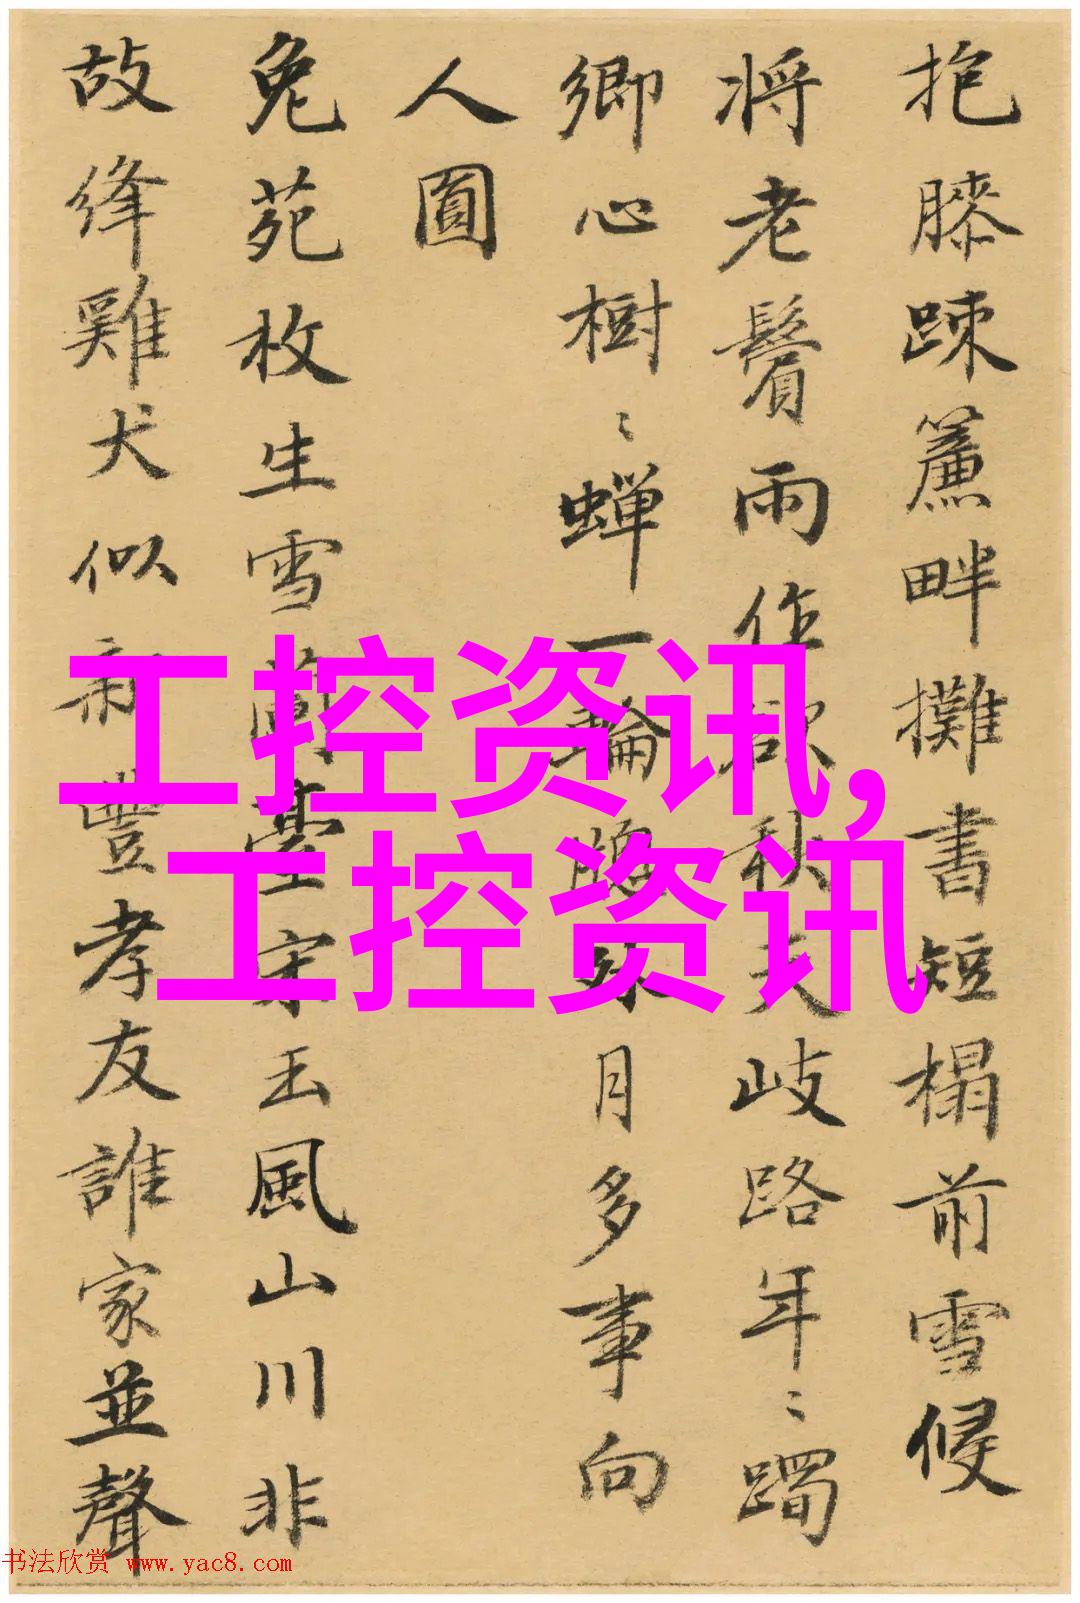 抱膝踈簾畔攤書短榻前雪侵
将老鬢雨作欲秋天岐路年〻躅
鄉心樹〻蟬一輪臨水月多事向
人圓
兔苑枚生雪蘭臺宋玉風山川非
故絳雞犬似新豐孝友誰家並聲
工控资讯,
工控资讯
书法欣赏 www.yac8.com